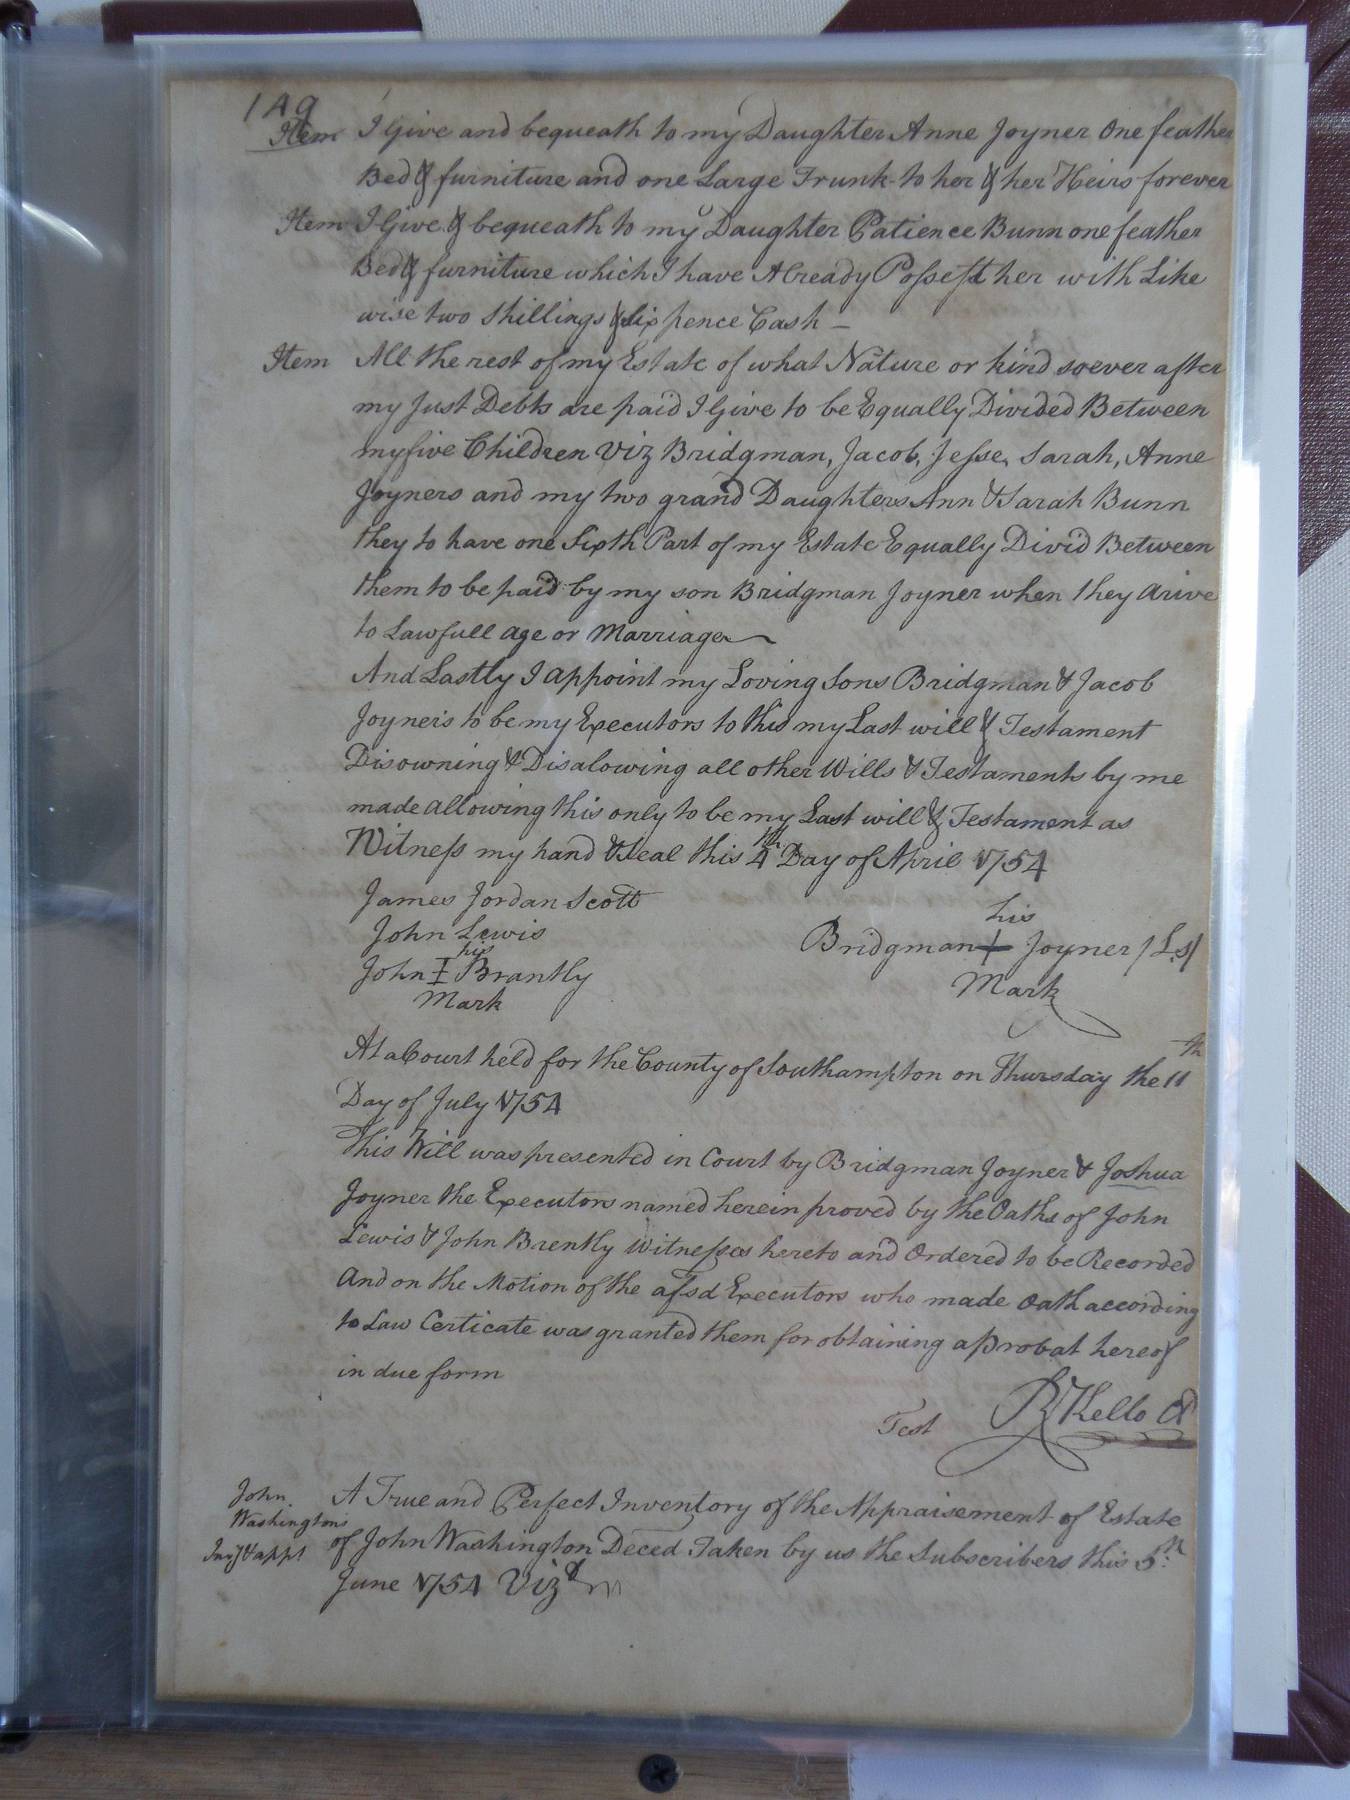 149
Item I Give and bequeath to my Daughter Anne Joyner One feather
Bed & furniture and one Large Trunk to her & her Heirs forever
Item I Give & bequeath to my Daughter Patience Bunn one feather
Bed & furniture which I have Already Possesst her with Like
wise two shillings & six pence Cash –
Item All the rest of my Estate of what Nature or kind soever after
my Just Debts are paid I Give to be Equally Divided Between
my five Children Viz Bridgman, Jacob, Jesse, Sarah, Anne
Joyners and my two grand Daughters Ann & Sarah Bunn
they to have one Sixth Part of my Estate Equally Divid Between
them to be paid by my son Bridgman Joyner when they arive
to Lawfull age or Marriage
And Lastly I appoint my Loving Sons Bridgman & Jacob
Joyners to be my Executors to this my Last will & Testament
Disowning & Disalowing all other Wills & Testaments by me
made allowing this only to be my Last will & Testament as
Witness my hand & Seal this 4th Day of April 1754
James Jordan Scott
John Lewis
his
John I Brantly
Mark
his
Bridgman + Joyner (LS)
Mark
At a Court held for the County of Southampton on Thursday the 11th
Day of July 1754
This Will was presented in Court by Bridgman Joyner & Joshua
Joyner the Executors named herein proved by the Oaths of John
Lewis & John Brently Witnesses hereto and Ordered to be Recorded
And on the Motion of the afsd Executors who made Oath according
to Law Certicate was granted them for obtaining a probat hereof
in due form
Test R Kello Cl
John
Washington's
Inv & appt
A True and Perfect Inventory of the Appraisement of Estate
of John Washington Deced Taken by us the Subscribers this 5th
June 1754 Vizt